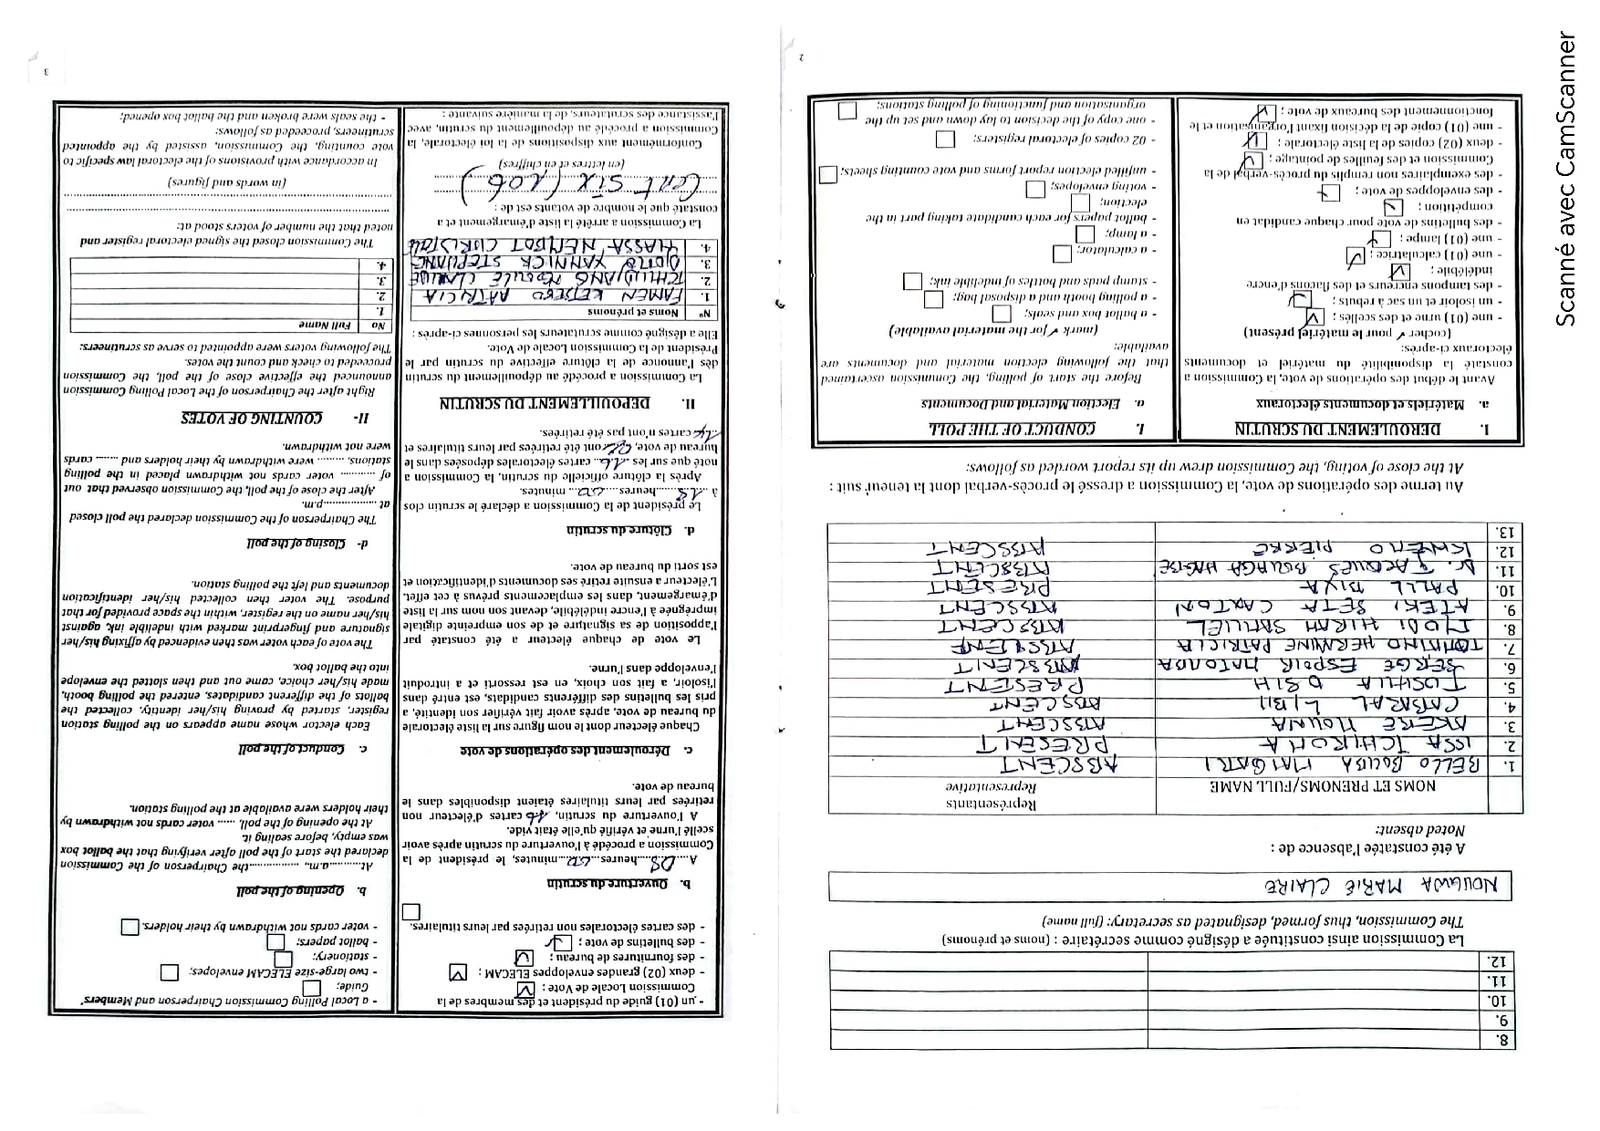 8.
9.
10.
11.
12.
La Commission ainsi constituée a désigné comme secrétaire : (noms et prénoms)
The Commission, thus formed, designated as secretary: (full name)
NOULAWA MARIE CLAIRE
A été constatée l'absence de :
Noted absent:
NOMS ET PRENOMS/FULL NAME Représentants
Representative
1. BELLO BOUBA MAIGARI ABSCENT
2. ISSA TCHIROMA PRESENT
3. AKERE MOUNA ABSCENT
4. CABRAL LIBII ABSCENT
5. JOSHUA OSIH PRESENT
6. SERGE ESPOIR MATOMBA ABSCENT
7. TOMAINO HERMINE PATRICIA
8. IYODI HIRAM SAMUEL ABSCENT
9. ATEKI SETA CAXTON ABSCENT
10. PRESENT
11. Dr. JACQUES BOUAGA HAGBE ABSCENT
12. KWEMO PIERRE ABSCENT
13.
Au terme des opérations de vote, la Commission a dressé le procès-verbal dont la teneur suit :
At the close of voting, the Commission drew up its report worded as follows:
I. DEROULEMENT DU SCRUTIN
a. Matériels et documents électoraux
Avant le début des opérations de vote, la Commission a
constaté la disponibilité du matériel et documents
électoraux ci-après:
(cocher ✓ pour le matériel présent)
- une (01) urne et des scellés ;
- un isoloir et un sac à rebuts ;
- des tampons encreurs et des flacons d'encre
indélébile ;
- une (01) calculatrice ;
- une (01) lampe ;
- des bulletins de vote pour chaque candidat en
compétition ;
- des enveloppes de vote ;
- des exemplaires non remplis du procès-verbal de la
Commission et des feuilles de pointage ;
- deux (02) copies de la liste électorale ;
- une (01) copie de la décision fixant l'organisation et le
fonctionnement des bureaux de vote ;
I. CONDUCT OF THE POLL
a. Election Material and Documents
Before the start of polling, the Commission ascertained
that the following election material and documents are
available:
(mark ✓ for the material available)
- a ballot box and seals;
- a polling booth and a disposal bag;
- stamp pads and bottles of indelible ink;
- a calculator;
- a lamp;
- ballot papers for each candidate taking part in the
election;
- voting envelopes;
- unfilled election report forms and vote counting sheets;
- 02 copies of electoral registers;
- one copy of the decision to lay down and set up the
organisation and functioning of polling stations;
2
- un (01) guide du président et des membres de la
Commission Locale de Vote ;
- deux (02) grandes enveloppes ELECAM ;
- des fournitures de bureau ;
- des bulletins de vote ;
- des cartes électorales non retirées par leurs titulaires.
b. Ouverture du scrutin
A 08 heures 00 minutes, le président de la
Commission a procédé à l'ouverture du scrutin après avoir
scellé l'urne et vérifié qu'elle était vide.
A l'ouverture du scrutin, 16 cartes d'électeur non
retirées par leurs titulaires étaient disponibles dans le
bureau de vote.
c. Déroulement des opérations de vote
Chaque électeur dont le nom figure sur la liste électorale
du bureau de vote, après avoir fait vérifier son identité, a
pris les bulletins des différents candidats, est entré dans
l'isoloir, a fait son choix, en est ressorti et a introduit
l'enveloppe dans l'urne.
Le vote de chaque électeur a été constaté par
l'apposition de sa signature et de son empreinte digitale
imprégnée à l'encre indélébile, devant son nom sur la liste
d'émargement, dans les emplacements prévus à cet effet.
L'électeur a ensuite retiré ses documents d'identification et
est sorti du bureau de vote.
d. Clôture du scrutin
Le président de la Commission a déclaré le scrutin clos
à 18 heures 00 minutes.
Après la clôture officielle du scrutin, la Commission a
noté que sur les 16 cartes électorales déposées dans le
bureau de vote, 02 ont été retirées par leurs titulaires et
14 cartes n'ont pas été retirées.
II. DEPOUILLEMENT DU SCRUTIN
La Commission a procédé au dépouillement du scrutin
dès l'annonce de la clôture effective du scrutin par le
Président de la Commission Locale de Vote.
Elle a désigné comme scrutateurs les personnes ci-après :
N° Noms et prénoms
1. FAMEN PATRICIA
2. CLAUDE
3. DJOMO YANNICK STEPHANE
4.
La Commission a arrêté la liste d'émargement et a
constaté que le nombre de votants est de :
Cent six (106)
(en lettres et en chiffres)
Conformément aux dispositions de la loi électorale, la
Commission a procédé au dépouillement du scrutin, avec
l'assistance des scrutateurs, de la manière suivante :
- a Local Polling Commission Chairperson and Members'
Guide;
- two large-size ELECAM envelopes;
- stationery;
- ballot papers;
- voter cards not withdrawn by their holders.
b. Opening of the poll
At..........a.m., ................the Chairperson of the Commission
declared the start of the poll after verifying that the ballot box
was empty, before sealing it.
At the opening of the poll, ...... voter cards not withdrawn by
their holders were available at the polling station.
c. Conduct of the poll
Each elector whose name appears on the polling station
register, started by proving his/her identity, collected the
ballots of the different candidates, entered the polling booth,
made his/her choice, came out and then slotted the envelope
into the ballot box.
The vote of each voter was then evidenced by affixing his/her
signature and fingerprint marked with indelible ink, against
his/her name on the register, within the space provided for that
purpose. The voter then collected his/her identification
documents and left the polling station.
d- Closing of the poll
The Chairperson of the Commission declared the poll closed
at ....................p.m.
After the close of the poll, the Commission observed that out
of .......... voter cards not withdrawn placed in the polling
stations, ........ were withdrawn by their holders and ....... cards
were not withdrawn.
II- COUNTING OF VOTES
Right after the Chairperson of the Local Polling Commission
announced the effective close of the poll, the Commission
proceeded to check and count the votes.
The following voters were appointed to serve as scrutineers:
No Full Name
1.
2.
3.
4.
The Commission closed the signed electoral register and
noted that the number of voters stood at:
(in words and figures)
In accordance with provisions of the electoral law specific to
vote counting, the Commission, assisted by the appointed
scrutineers, proceeded as follows:
- the seals were broken and the ballot box opened;
3
Scanné avec CamScanner